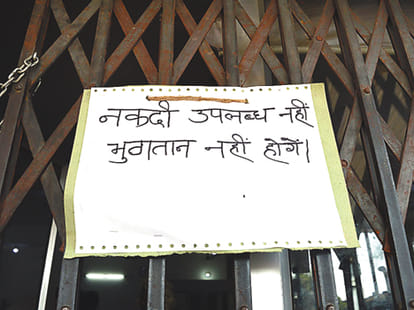 नकदी उपलब्ध नहीं
भुगतान नहीं होगें।